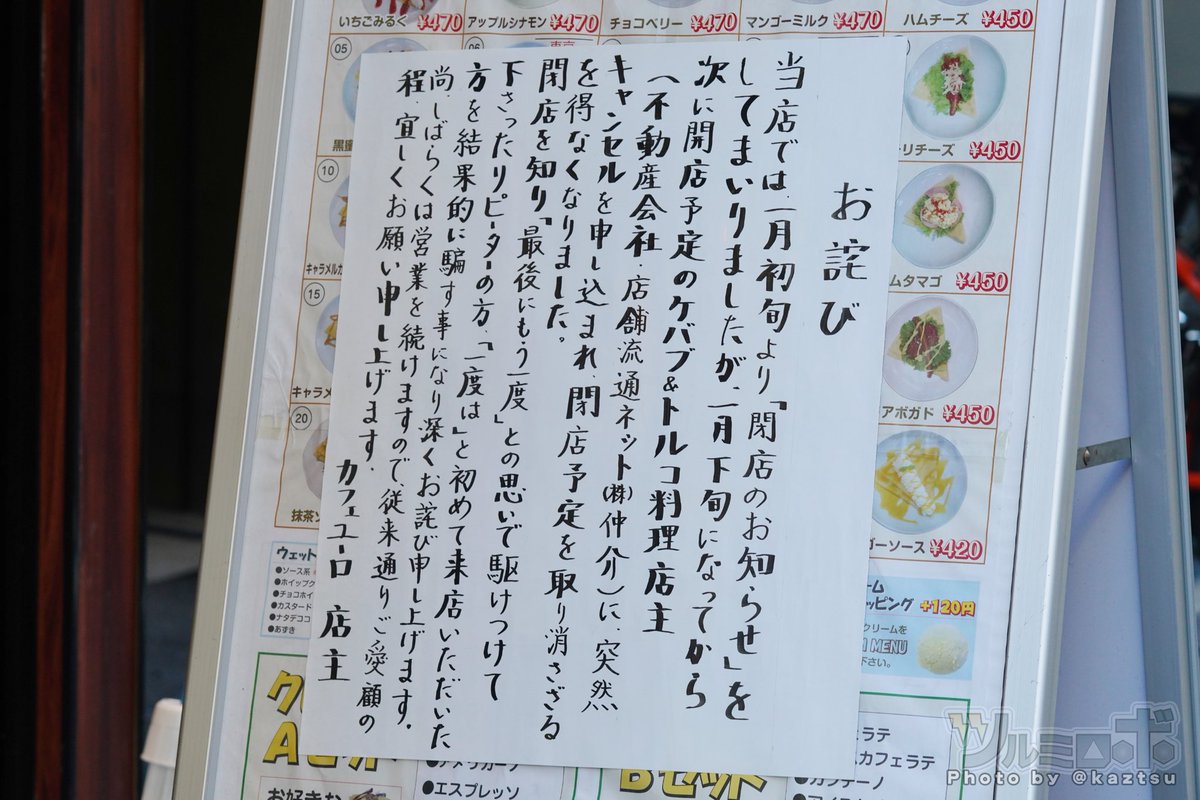 お詫び
当店では、一月初旬より「閉店のお知らせ」を
してまいりましたが、一月下旬になってから
次に開店予定のケバブ&トルコ料理店主
(不動産会社・店舗流通ネット(株)仲介)に、突然
キャンセルを申し込まれ、閉店予定を取り消さざる
を得なくなりました。
閉店を知り「最後にもう一度」との思いで駆けつけて
下さったリピーターの方、「一度は」と初めて来店いただいた
方を結果的に騙す事になり深くお詫び申し上げます。
尚、しばらくは営業を続けますので、従来通りご愛顧の
程、宜しくお願い申し上げます。
カフェユーロ 店主
いちごみるく ¥470
アップルシナモン ¥470
チョコベリー ¥470
マンゴーミルク ¥470
ハムチーズ ¥450
05
06
リチーズ ¥450
10
キャラメル
ムタマゴ ¥450
15
キャラメ
アボガド ¥450
20
抹茶
ゴーソース ¥420
ウェット
●ソース系
●ホイップク
●チョコホイ
●カスタード
●ナタデココ
●あずき
ーム
ッピング +120円
クリームを
MENU
下さい。
Aセッ
お好きな
●アメリカーノ
●エスプレッソ
Bセット
ェラテ
カフェラテ
●カプチーノ
ツルミロボ
Photo by @kaztsu